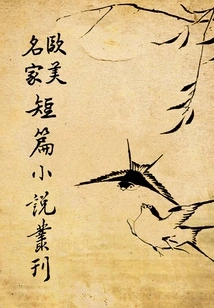 歐美
名家
短篇小說叢刊